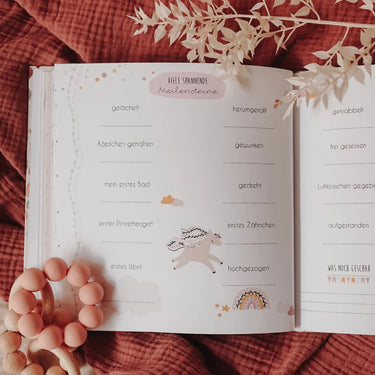 VIELE SPANNENDE
Meilensteine
gelächelt
Köpfchen gehalten
mein erstes Bad
erster Pinzettengriff
erstes Wort
herumgerollt
gewunken
gedreht
erstes Zähnchen
hochgezogen
gekrabbelt
frei gesessen
Luftküsschen gegeben
aufgestanden
WAS NOCH GESCHAH